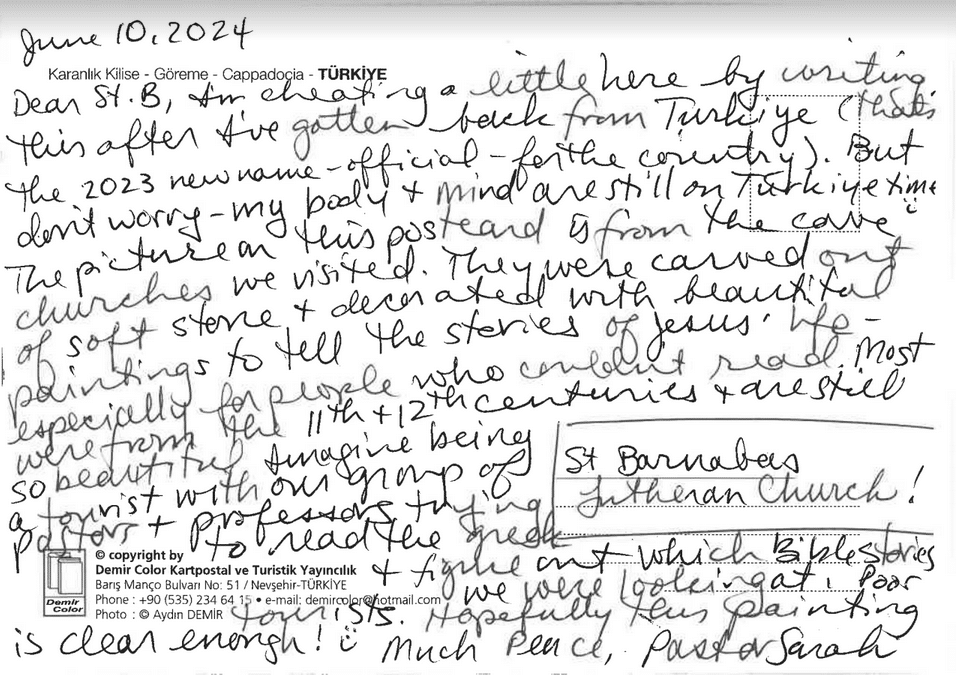 June 10, 2024
Karanlık Kilise - Göreme - Cappadocia - TÜRKİYE
Dear St. B, I'm cheating a little here by writing
this after I've gotten back from Türkiye (that's
the 2023 new name - official - for the country). But
don't worry - my body + mind are still on Türkiye time
The picture on this postcard is from the cave
churches we visited. They were carved out
of soft stone + decorated with beautiful
paintings to tell the stories of Jesus' life -
especially for people who couldn't read. Most
were from the 11th + 12th centuries + are still
so beautiful. Imagine being
a tourist with our group of
pastors + professors trying
to read the Greek
+ figure out which Bible stories
we were looking at. Poor
tourists. Hopefully this painting
is clear enough! Much Peace, Pastor Sarah
St Barnabas
Lutheran Church!
Demir
Color
© copyright by
Demir Color Kartpostal ve Turistik Yayıncılık
Barış Manço Bulvarı No: 51 / Nevşehir-TÜRKİYE
Phone : +90 (535) 234 64 15 • e-mail: demircolor@hotmail.com
Photo : © Aydın DEMİR